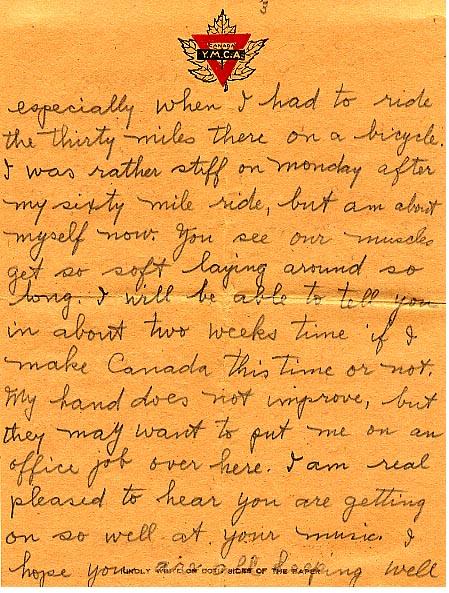 3
CANADA
Y.M.C.A.
especially when I had to ride
the thirty miles there on a bicycle.
I was rather stiff on monday after
my sixty mile ride, but am about
myself now. You see our muscles
get so soft laying around so
long. I will be able to tell you
in about two weeks time if I
make Canada this time or not.
My hand does not improve, but
they may want to put me on an
office job over here. I am real
pleased to hear you are getting
on so well at your music. I
hope you are all keeping well
KINDLY WRITE ON BOTH SIDES OF THE PAPER